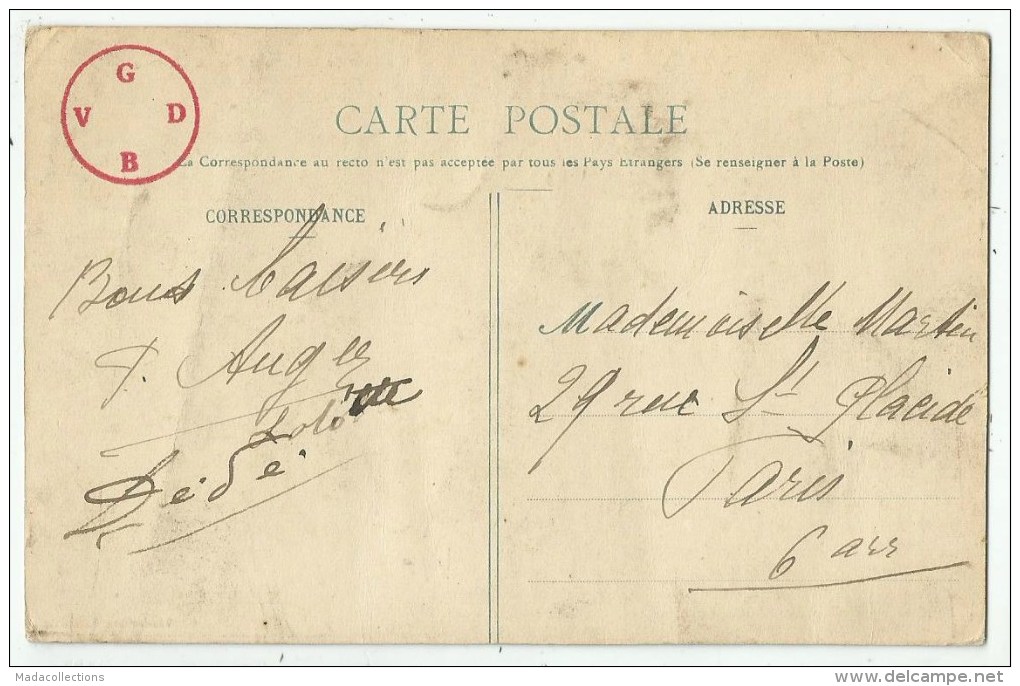 G
V D
B
CARTE POSTALE
La Correspondance au recto n'est pas acceptée par tous les Pays Etrangers (Se renseigner à la Poste)
CORRESPONDANCE
Bons baisers
Auger
Lolotte
Dédé.
ADRESSE
Mademoiselle Martin
29 rue St Placide
Paris
6 arr
Madacollections
www.delcampe.net